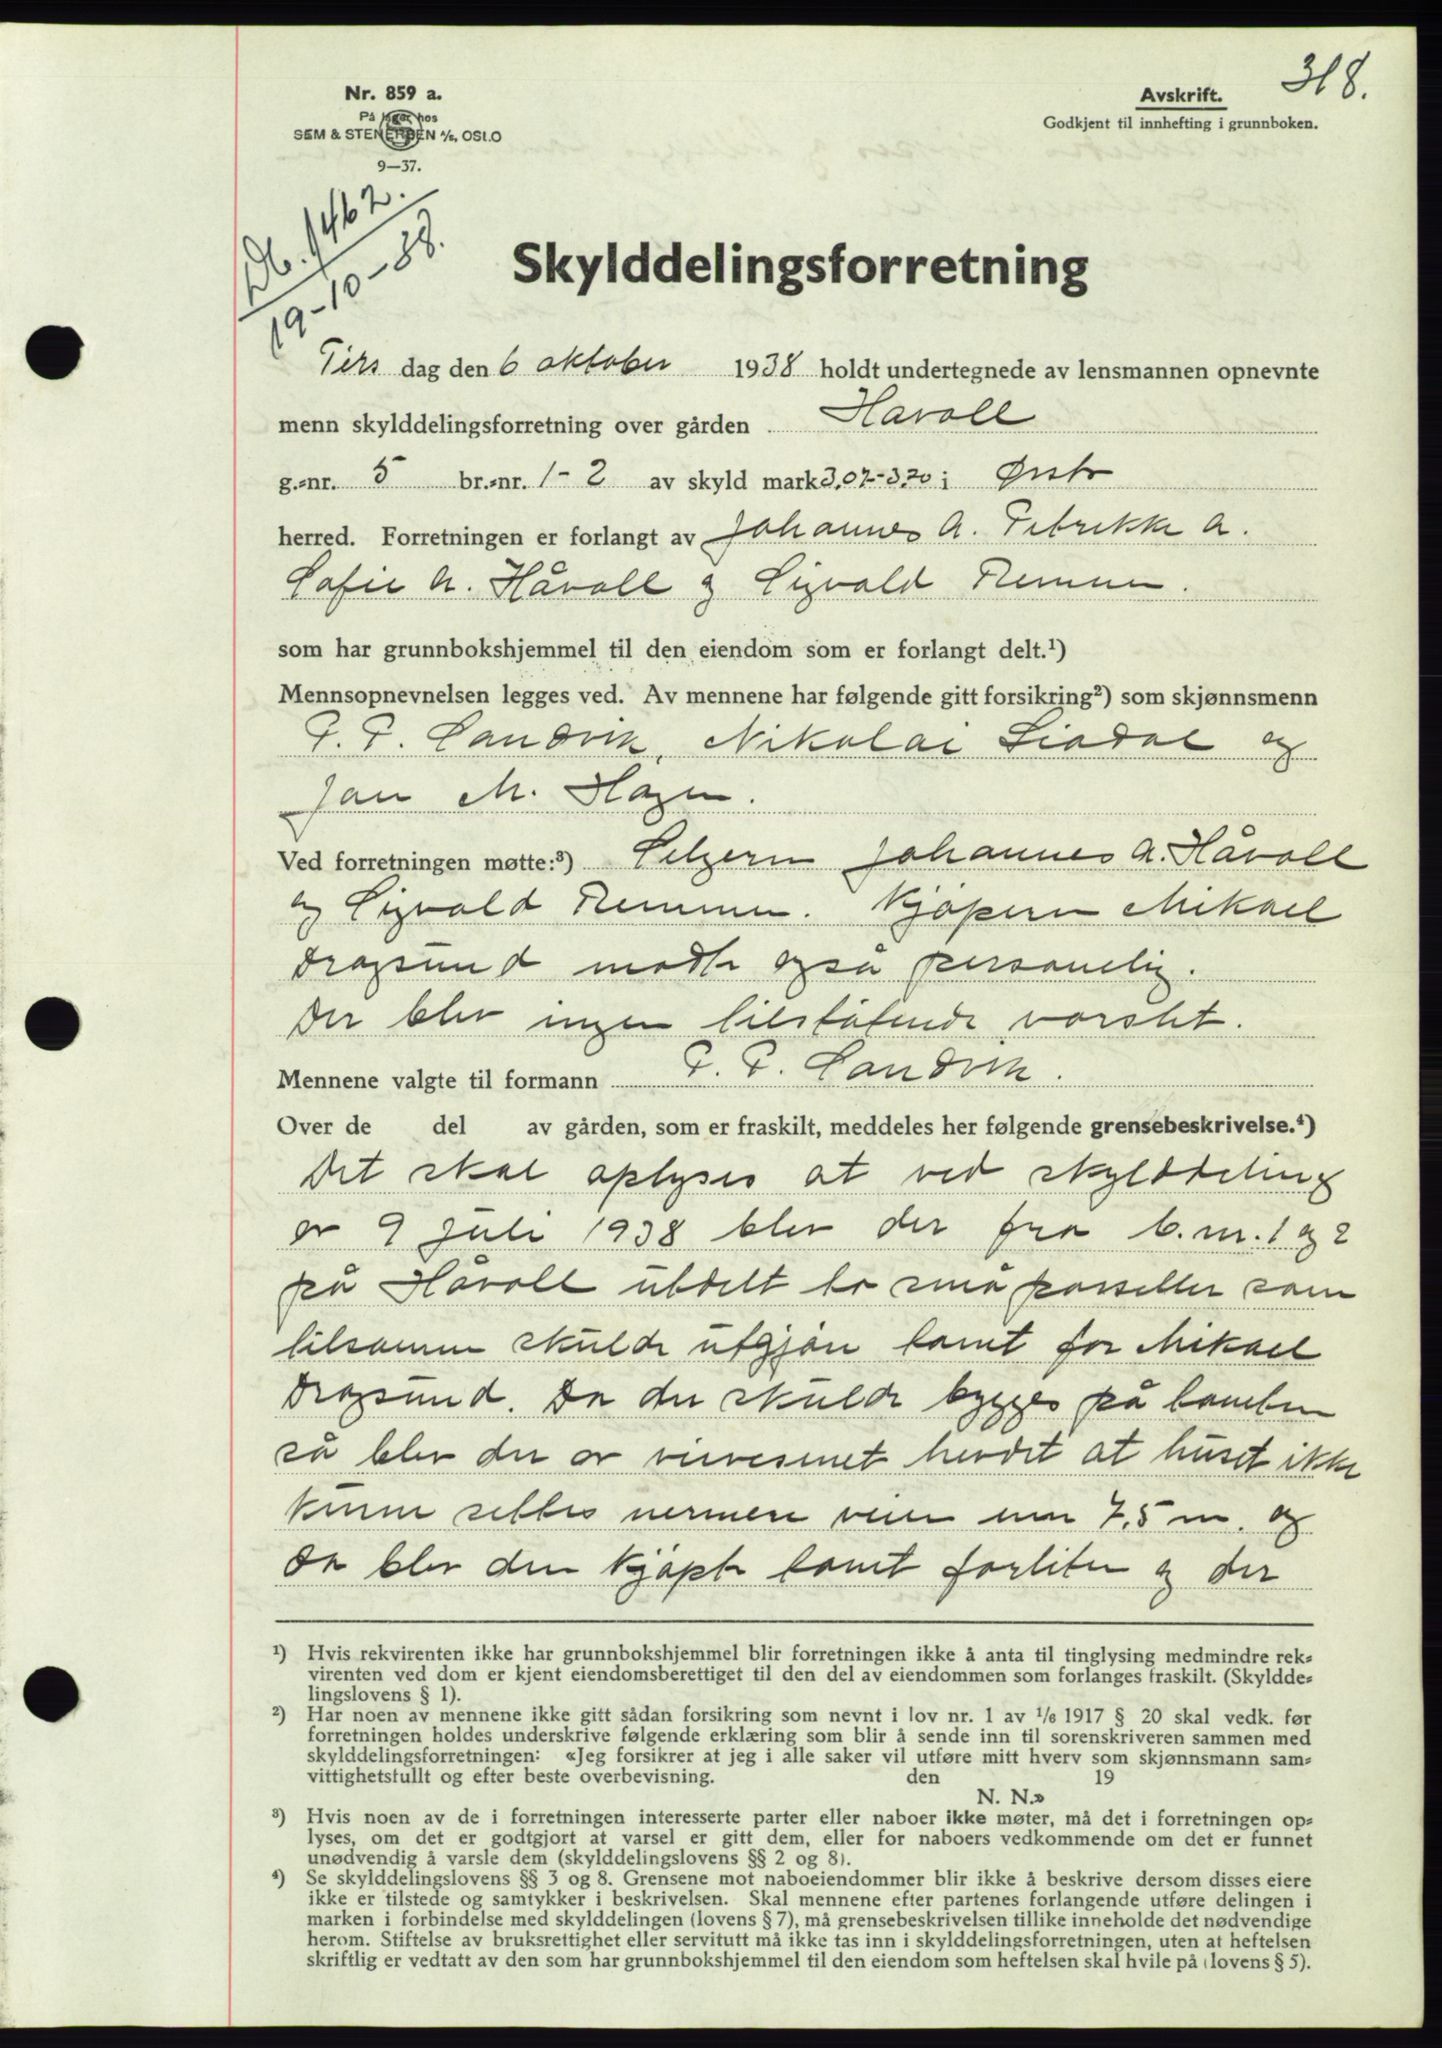 318.
Nr. 859 a.
På lager hos
SEM & STENERSEN A/S, OSLO
9—37.
Avskrift.
Godkjent til innhefting i grunnboken.
Db. 1462.
19-10-38.
Skylddelingsforretning
Tirs dag den 6 oktober 1938 holdt undertegnede av lensmannen opnevnte
menn skylddelingsforretning over gården Håvoll
g.=nr. 5 br.=nr. 1-2 av skyld mark 3,07-3,70 i Ørsta
herred. Forretningen er forlangt av Johannes A. Petrikke A.
Sofie A. Håvoll og Sigvald Remmen.
som har grunnbokshjemmel til den eiendom som er forlangt delt.¹)
Mennsopnevnelsen legges ved. Av mennene har følgende gitt forsikring²) som skjønnsmenn
P. P. Sandvik, Nikolai Liadal og
Jon M. Hagen.
Ved forretningen møtte:³) Selgerne Johannes A. Håvoll
og Sigvald Remmen. Kjøperen Mikael
Dragsund møtte også personelig.
Der blev ingen tilstøtende varslet.
Mennene valgte til formann P. P. Sandvik.
Over de del av gården, som er fraskilt, meddeles her følgende grensebeskrivelse.⁴)
Det skal oplyses at ved skylddeling
av 9 juli 1938 blev der fra b.nr. 1 og 2
på Håvoll utdelt to små parseller som
tilsammen skulde utgjøre tomt for Mikael
Dragsund. Da der skulde bygges på tomten
så blev der av veivesenet hevdet at huset ikke
kunne settes nermere veien enn 7,5 m. og
da blev den kjøpte tomt forliten og der
¹) Hvis rekvirenten ikke har grunnbokshjemmel blir forretningen ikke å anta til tinglysing medmindre rek=
virenten ved dom er kjent eiendomsberettiget til den del av eiendommen som forlanges fraskilt. (Skyldde=
lingslovens § 1).
²) Har noen av mennene ikke gitt sådan forsikring som nevnt i lov nr. 1 av 1/6 1917 § 20 skal vedk. før
forretningen holdes underskrive følgende erklæring som blir å sende inn til sorenskriveren sammen med
skylddelingsforretningen: «Jeg forsikrer at jeg i alle saker vil utføre mitt hverv som skjønnsmann sam=
vittighetsfullt og efter beste overbevisning. den 19
N. N.»
³) Hvis noen av de i forretningen interesserte parter eller naboer ikke møter, må det i forretningen op=
lyses, om det er godtgjort at varsel er gitt dem, eller for naboers vedkommende om det er funnet
unødvendig å varsle dem (skylddelingslovens §§ 2 og 8).
⁴) Se skylddelingslovens §§ 3 og 8. Grensene mot naboeiendommer blir ikke å beskrive dersom disses eiere
ikke er tilstede og samtykker i beskrivelsen. Skal mennene efter partenes forlangende utføre delingen i
marken i forbindelse med skylddelingen (lovens § 7), må grensebeskrivelsen tillike inneholde det nødvendige
herom. Stiftelse av bruksrettighet eller servitutt må ikke tas inn i skylddelingsforretningen, uten at heftelsen
skriftlig er vedtatt av den som har grunnbokshjemmel til den eiendom som heftelsen skal hvile på (lovens § 5).